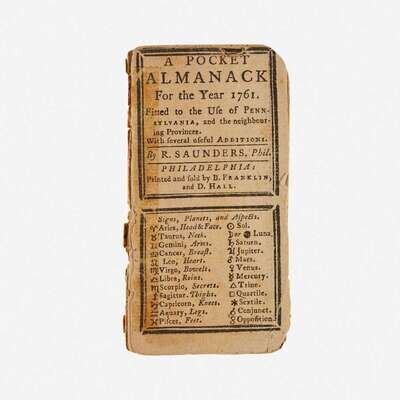 A POCKET
ALMANACK
For the Year 1761.
Fitted to the Use of PENN-
SYLVANIA, and the neighbour-
ing Provinces.
With several useful ADDITIONS.
By R. SAUNDERS, Phil.
PHILADELPHIA:
Printed and sold by B. FRANKLIN,
and D. HALL.
Signs, Planets, and Aspects.
♈ Aries, Head & Face. ☉ Sol.
♉ Taurus, Neck. ☽ or ● Luna.
♊ Gemini, Arms. ♄ Saturn.
♋ Cancer, Breast. ♃ Jupiter.
♌ Leo, Heart. ♂ Mars.
♍ Virgo, Bowels. ♀ Venus.
♎ Libra, Reins. ☿ Mercury.
♏ Scorpio, Secrets. △ Trine.
♐ Sagittar. Thighs. □ Quartile.
♑ Capricorn, Knees. ⚹ Sextile.
♒ Aquary, Legs. ☌ Conjunct.
♓ Pisces, Feet. ☍ Opposition.